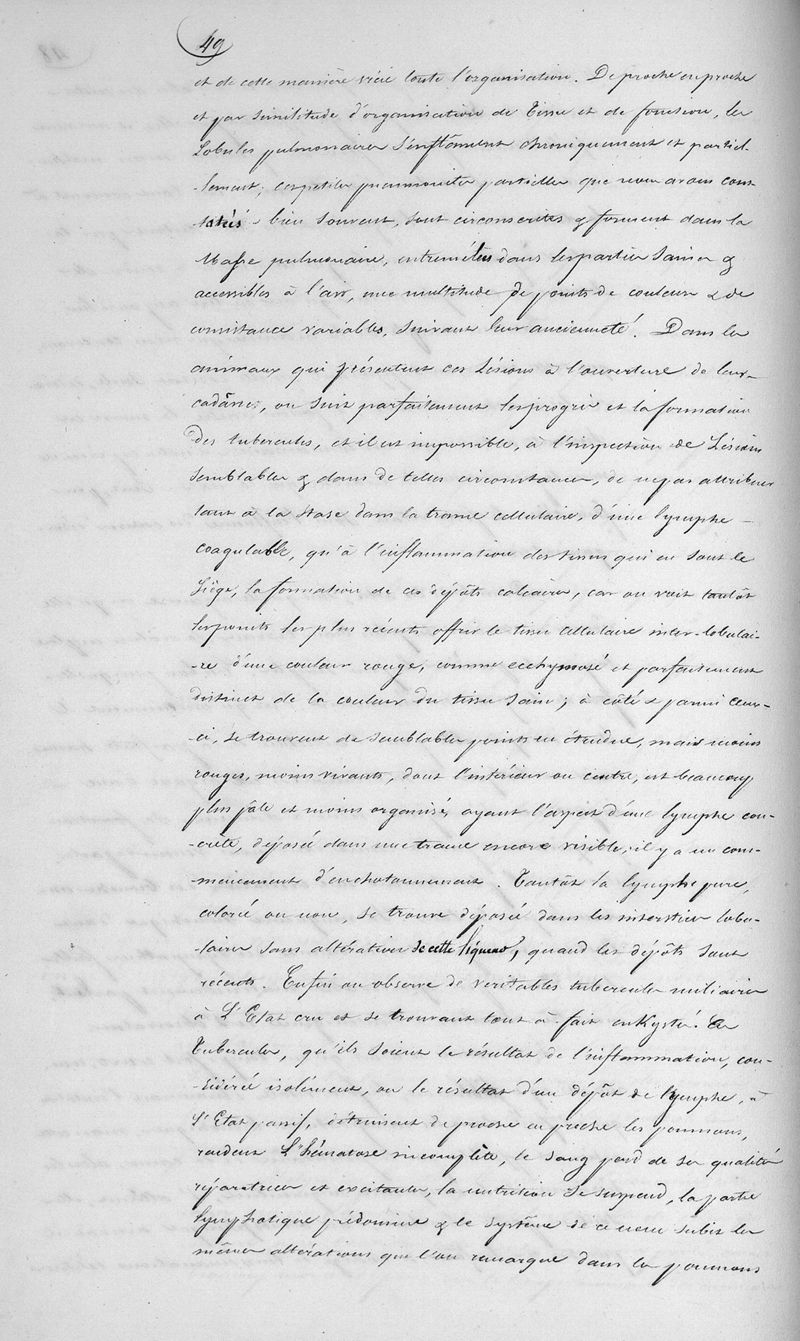 49
et de cette manière vicié toute l'organisation. De proche en proche
et par similitude d'organisation de Tissu et de fonction, les
Lobules pulmonaires s'enflâment chroniquement et partiel-
-lement; ces petites pneumonites partielles que nous avons cons-
-tatés bien souvent, sont circonscrites & forment dans la
Masse pulmonaire, entremêlées dans les parties saines &
accessibles à l'air, une multitude de points de couleur & de
consistance variables, suivant leur ancienneté. Dans les
animaux qui présentent ces Lésions à l'ouverture de leurs
cadâvres, on suit parfaitement les progrès et la formation
Des tubercules, et il est impossible, à l'inspection de Lésions
semblables & dans de telles circonstances, de ne pas attribuer
tant à la stase dans la trame cellulaire, d'une lymphe
coagulable, qu'à l'inflammation des tissus qui en sont le
Siège, la formation de ces dépôts calcaires, car on voit tantôt
les points les plus récents offrir le tissu cellulaire inter-lobulai-
-re d'une couleur rouge, comme ecchymosé et parfaitement
distinct de la couleur du tissu sain; à côté & parmi ceux-
-ci, se trouvent de semblables points en étendue, mais moins
rouges, moins vivants, dont l'intérieur ou centre, est beaucoup
plus pâle et moins organisé, ayant l'aspect d'une lymphe con-
-crète, déposée dans une trame encore visible, il y a un com-
-mencement d'enchatonnement. Tantôt la lymphe pure,
colorée ou non, se trouve déposée dans les interstices lobu-
-laires sans altération de cette liqueur, quand les dépôts sont
récents. Enfin on observe de véritables tubercules miliaires
à L'Etat cru et se trouvant tout à fait enKysté. Ces
Tubercules, qu'ils soient le résultat de l'inflammation, con-
-sidéré isolément, ou le résultat d'un dépôt de lymphe, à
l'Etat passif, détruisent de proche en proche les poumons,
rendent L'Hématose incomplète, le sang perd de ses qualités
réparatrices et excitantes, la nutrition se suspend, la partie
lymphatique prédomine & le système de ce nom subit les
mêmes altérations que l'on remarque dans les poumons